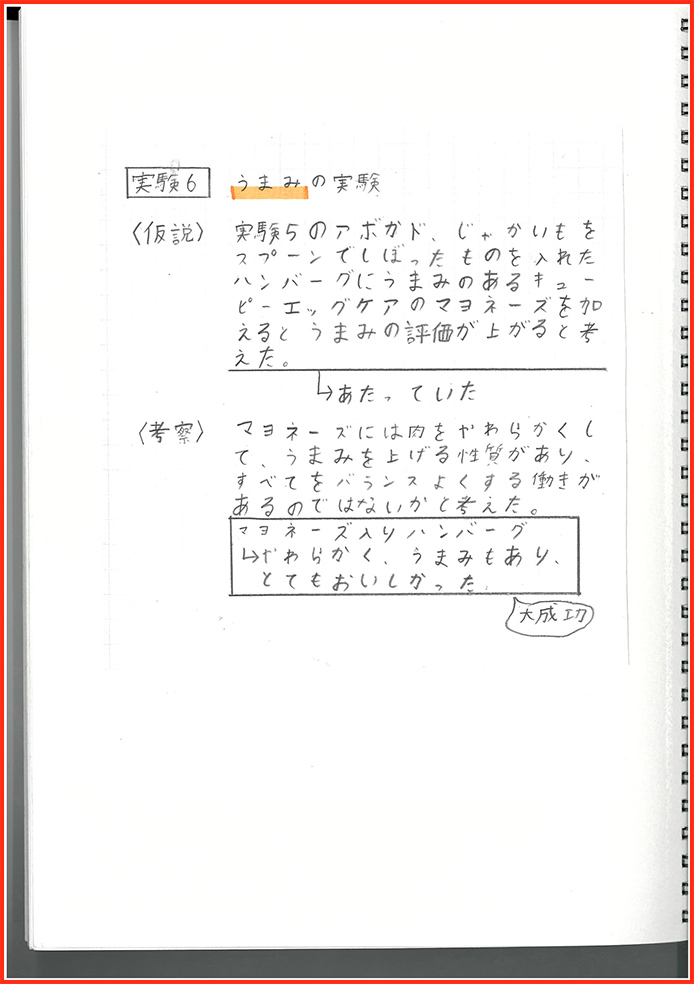 実験6 うまみの実験
〈仮説〉 実験5のアボガド、じゃがいもを
スプーンでしぼったものを入れた
ハンバーグにうまみのあるキュー
ピーエッグケアのマヨネーズを加
えるとうまみの評価が上がると考
えた。
↳あたっていた
〈考察〉 マヨネーズには肉をやわらかくし
て、うまみを上げる性質があり、
すべてをバランスよくする働きが
あるのではないかと考えた。
マヨネーズ入りハンバーグ
↳やわらかく、うまみもあり、
とてもおいしかった。
大成功